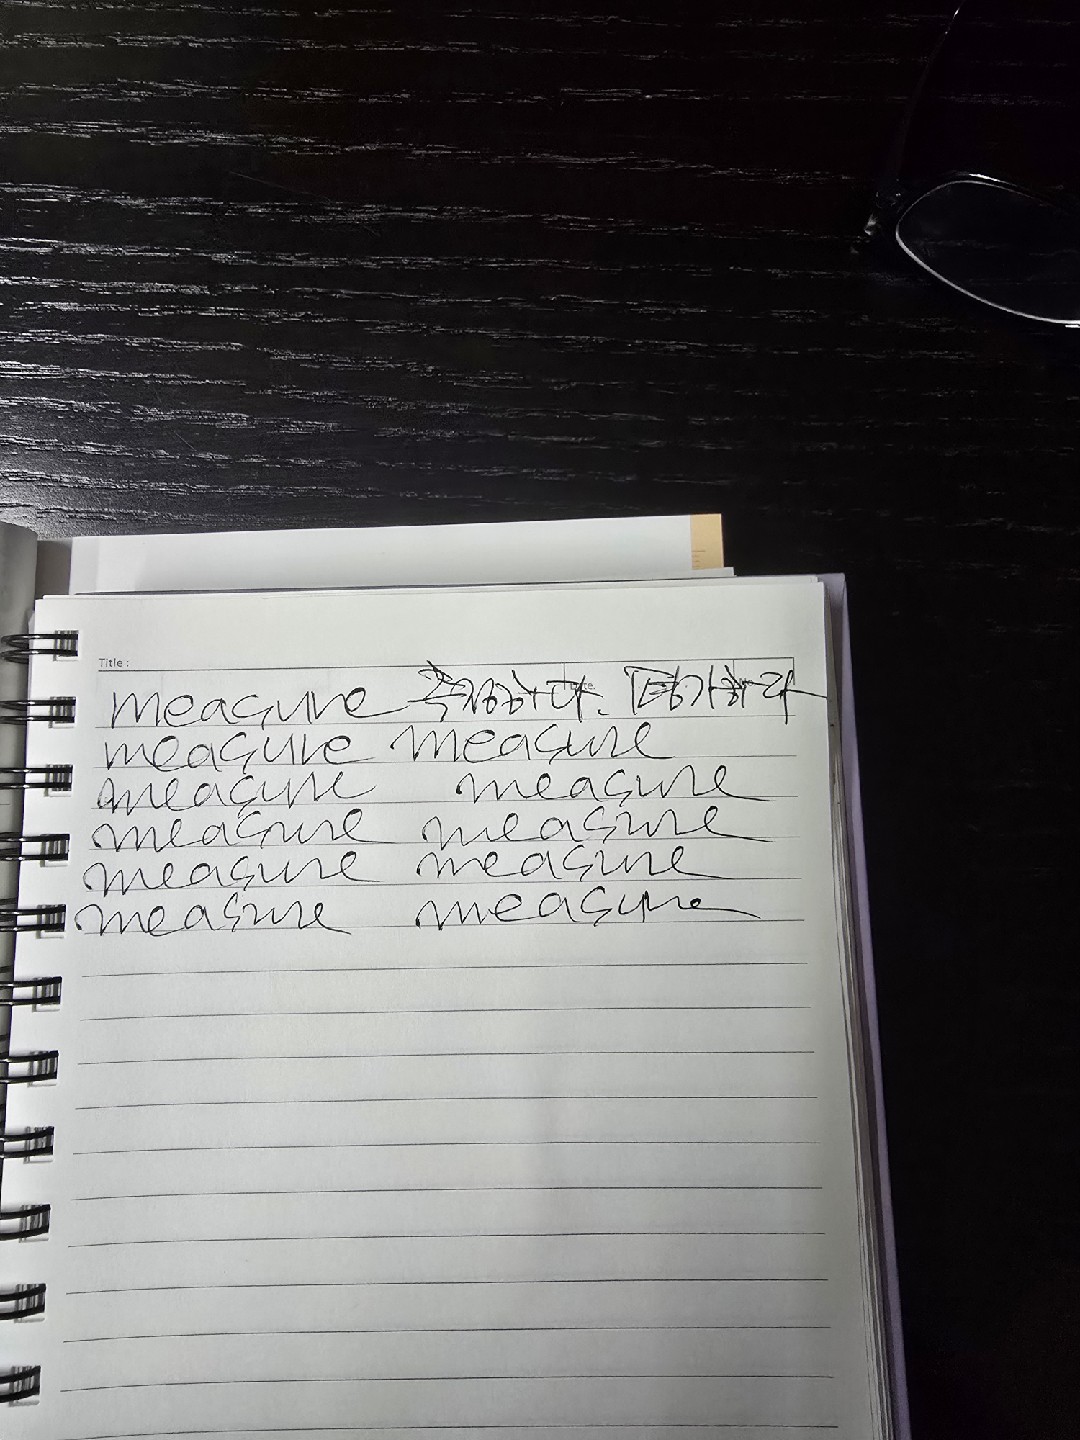 Title :
measure 측정하다. 평가하다
measure measure
measure measure
measure measure
measure measure
measure measure